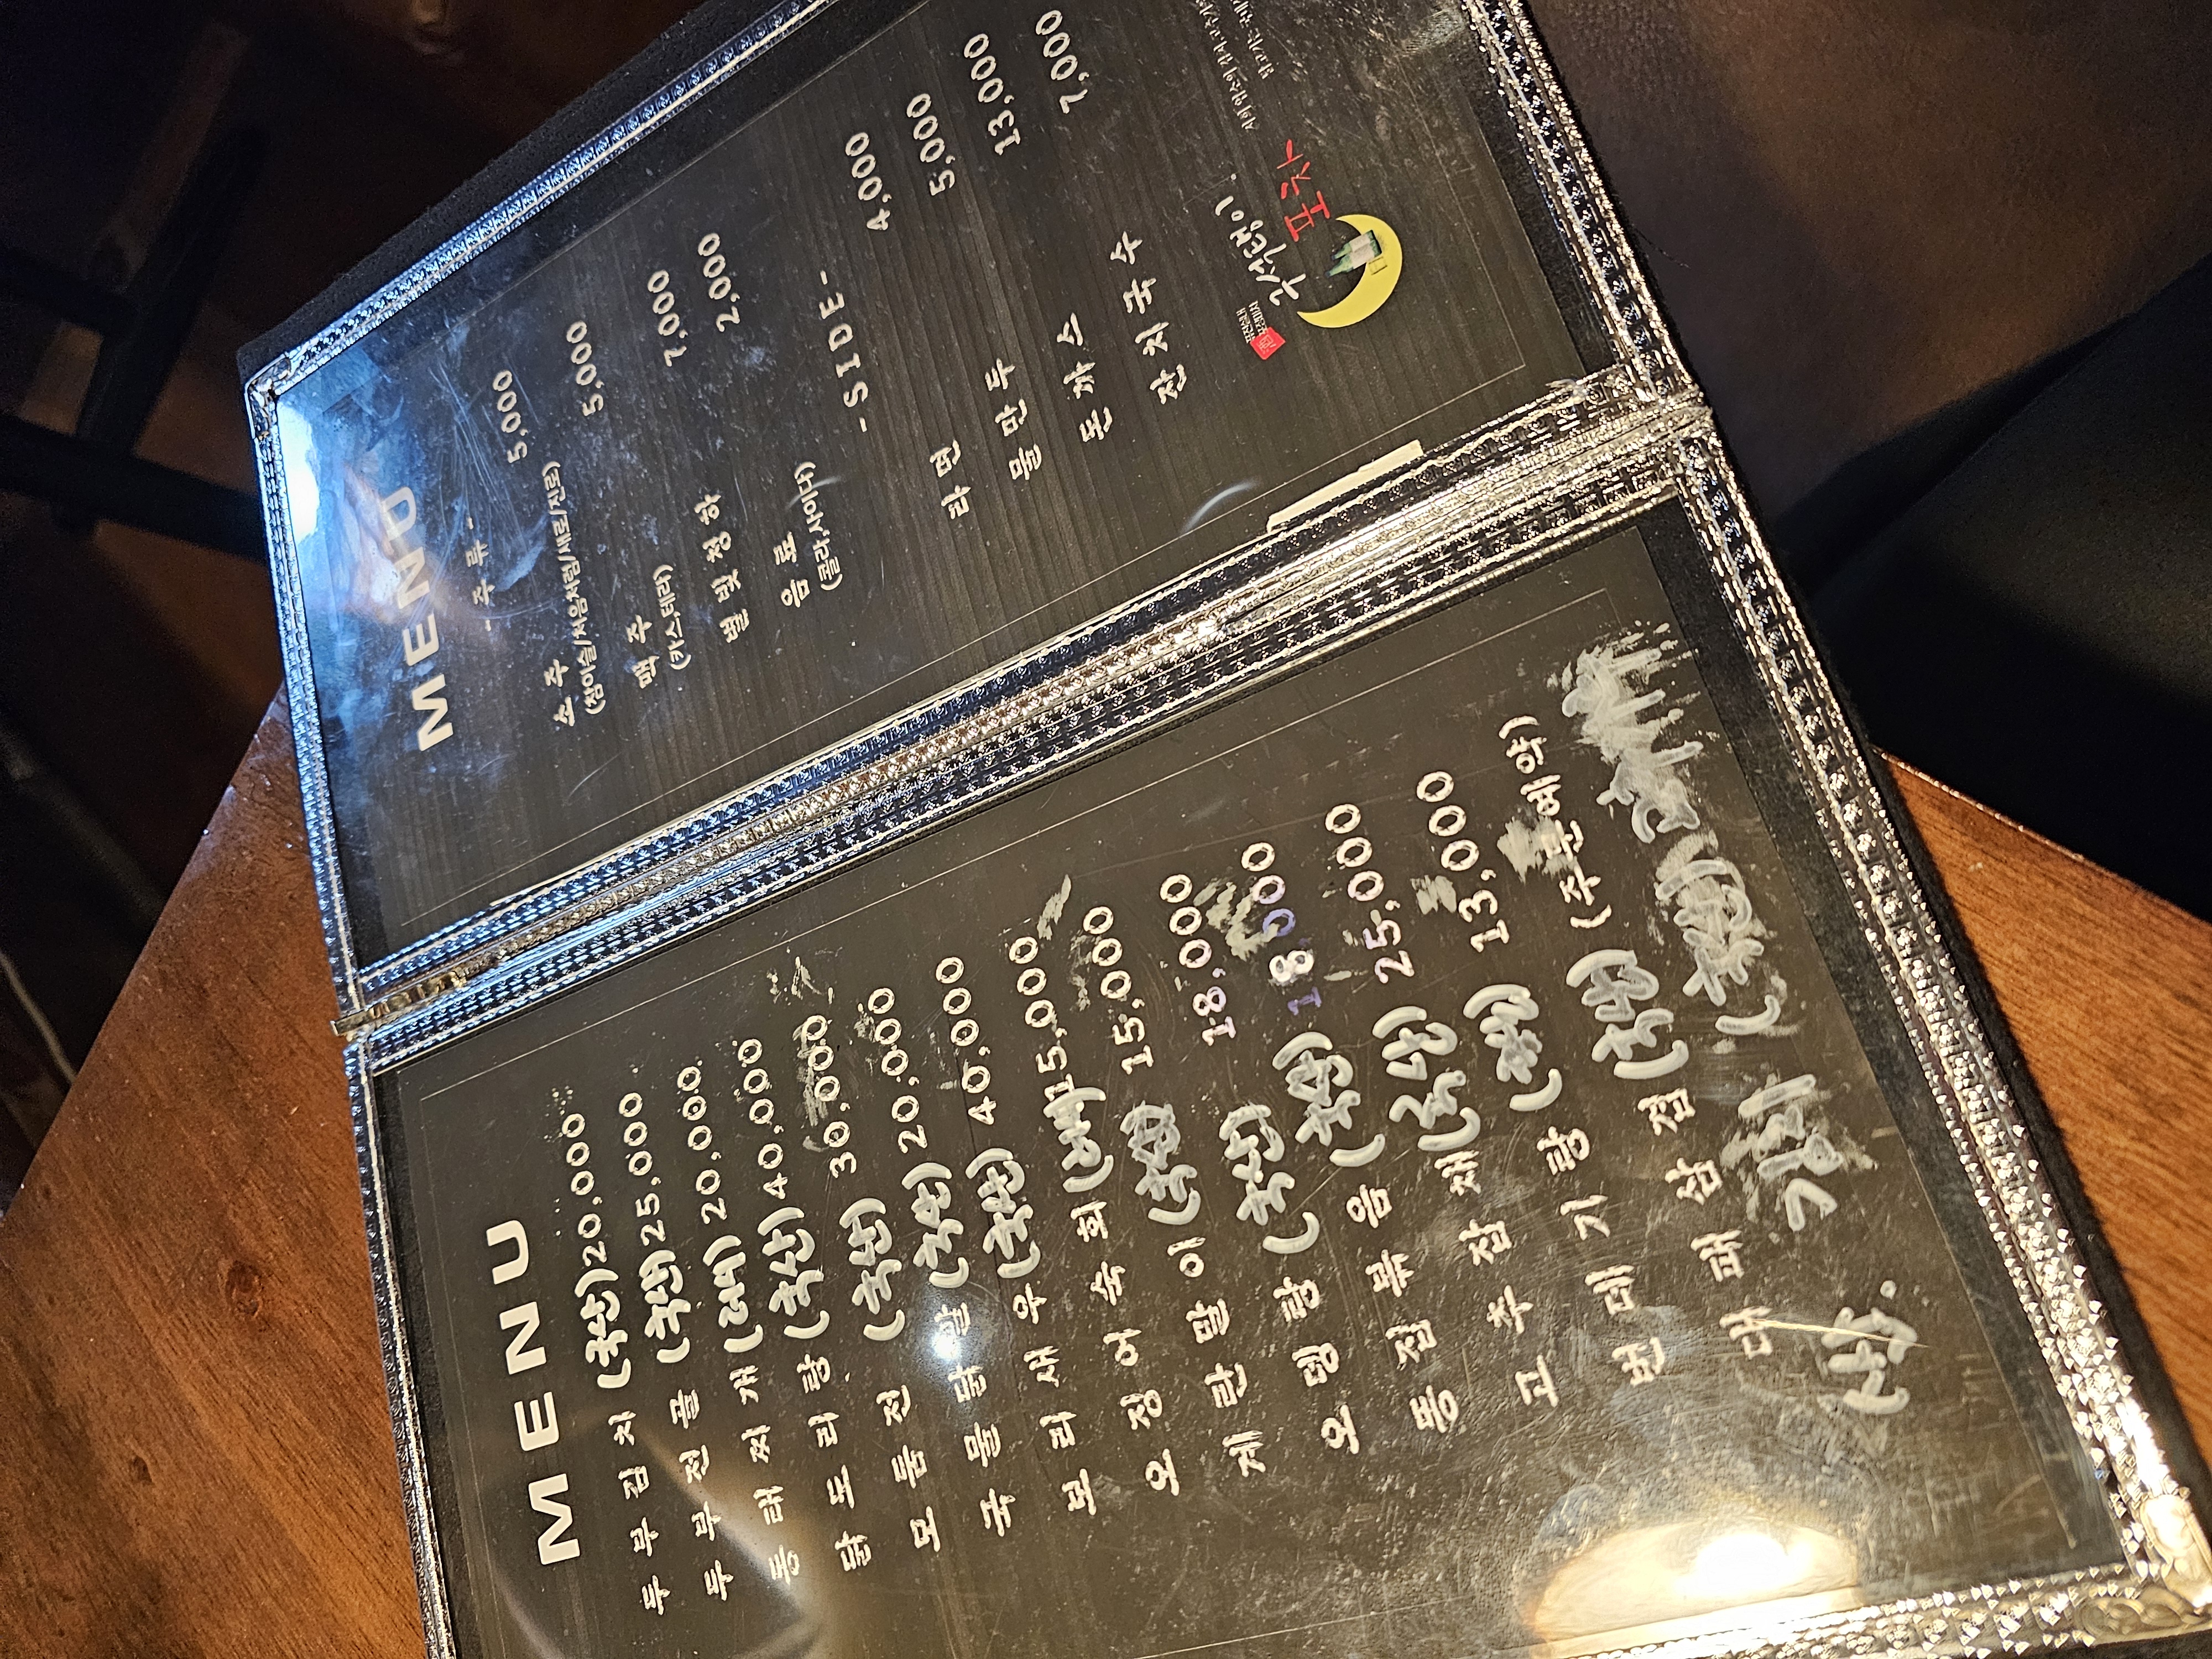 MENU
두부김치 (국산) 20,000
두부전골 (국산) 25,000
동태찌개 20,000
닭도리탕 (국산) 40,000
모둠전 (국산) 30,000
국물닭발 (국산) 20,000
보리새우 (국산) 40,000
오징어숙회 15,000
계란말이 (국산) 15,000
오뎅탕 (국산) 18,000
똥집볶음 (국산) 18,000
고추잡채 (국산) 25,000
번데기탕 13,000
대패삼겹 (국산) (주문예약)
MENU
- 주류 -
소주 5,000
(참이슬/처음처럼/새로/진로)
맥주 5,000
(카스,테라)
별빛청하 7,000
음료 2,000
(콜라,사이다)
-SIDE-
라면 4,000
물만두 5,000
돈까스 13,000
잔치국수 7,000
구석탱이
포차